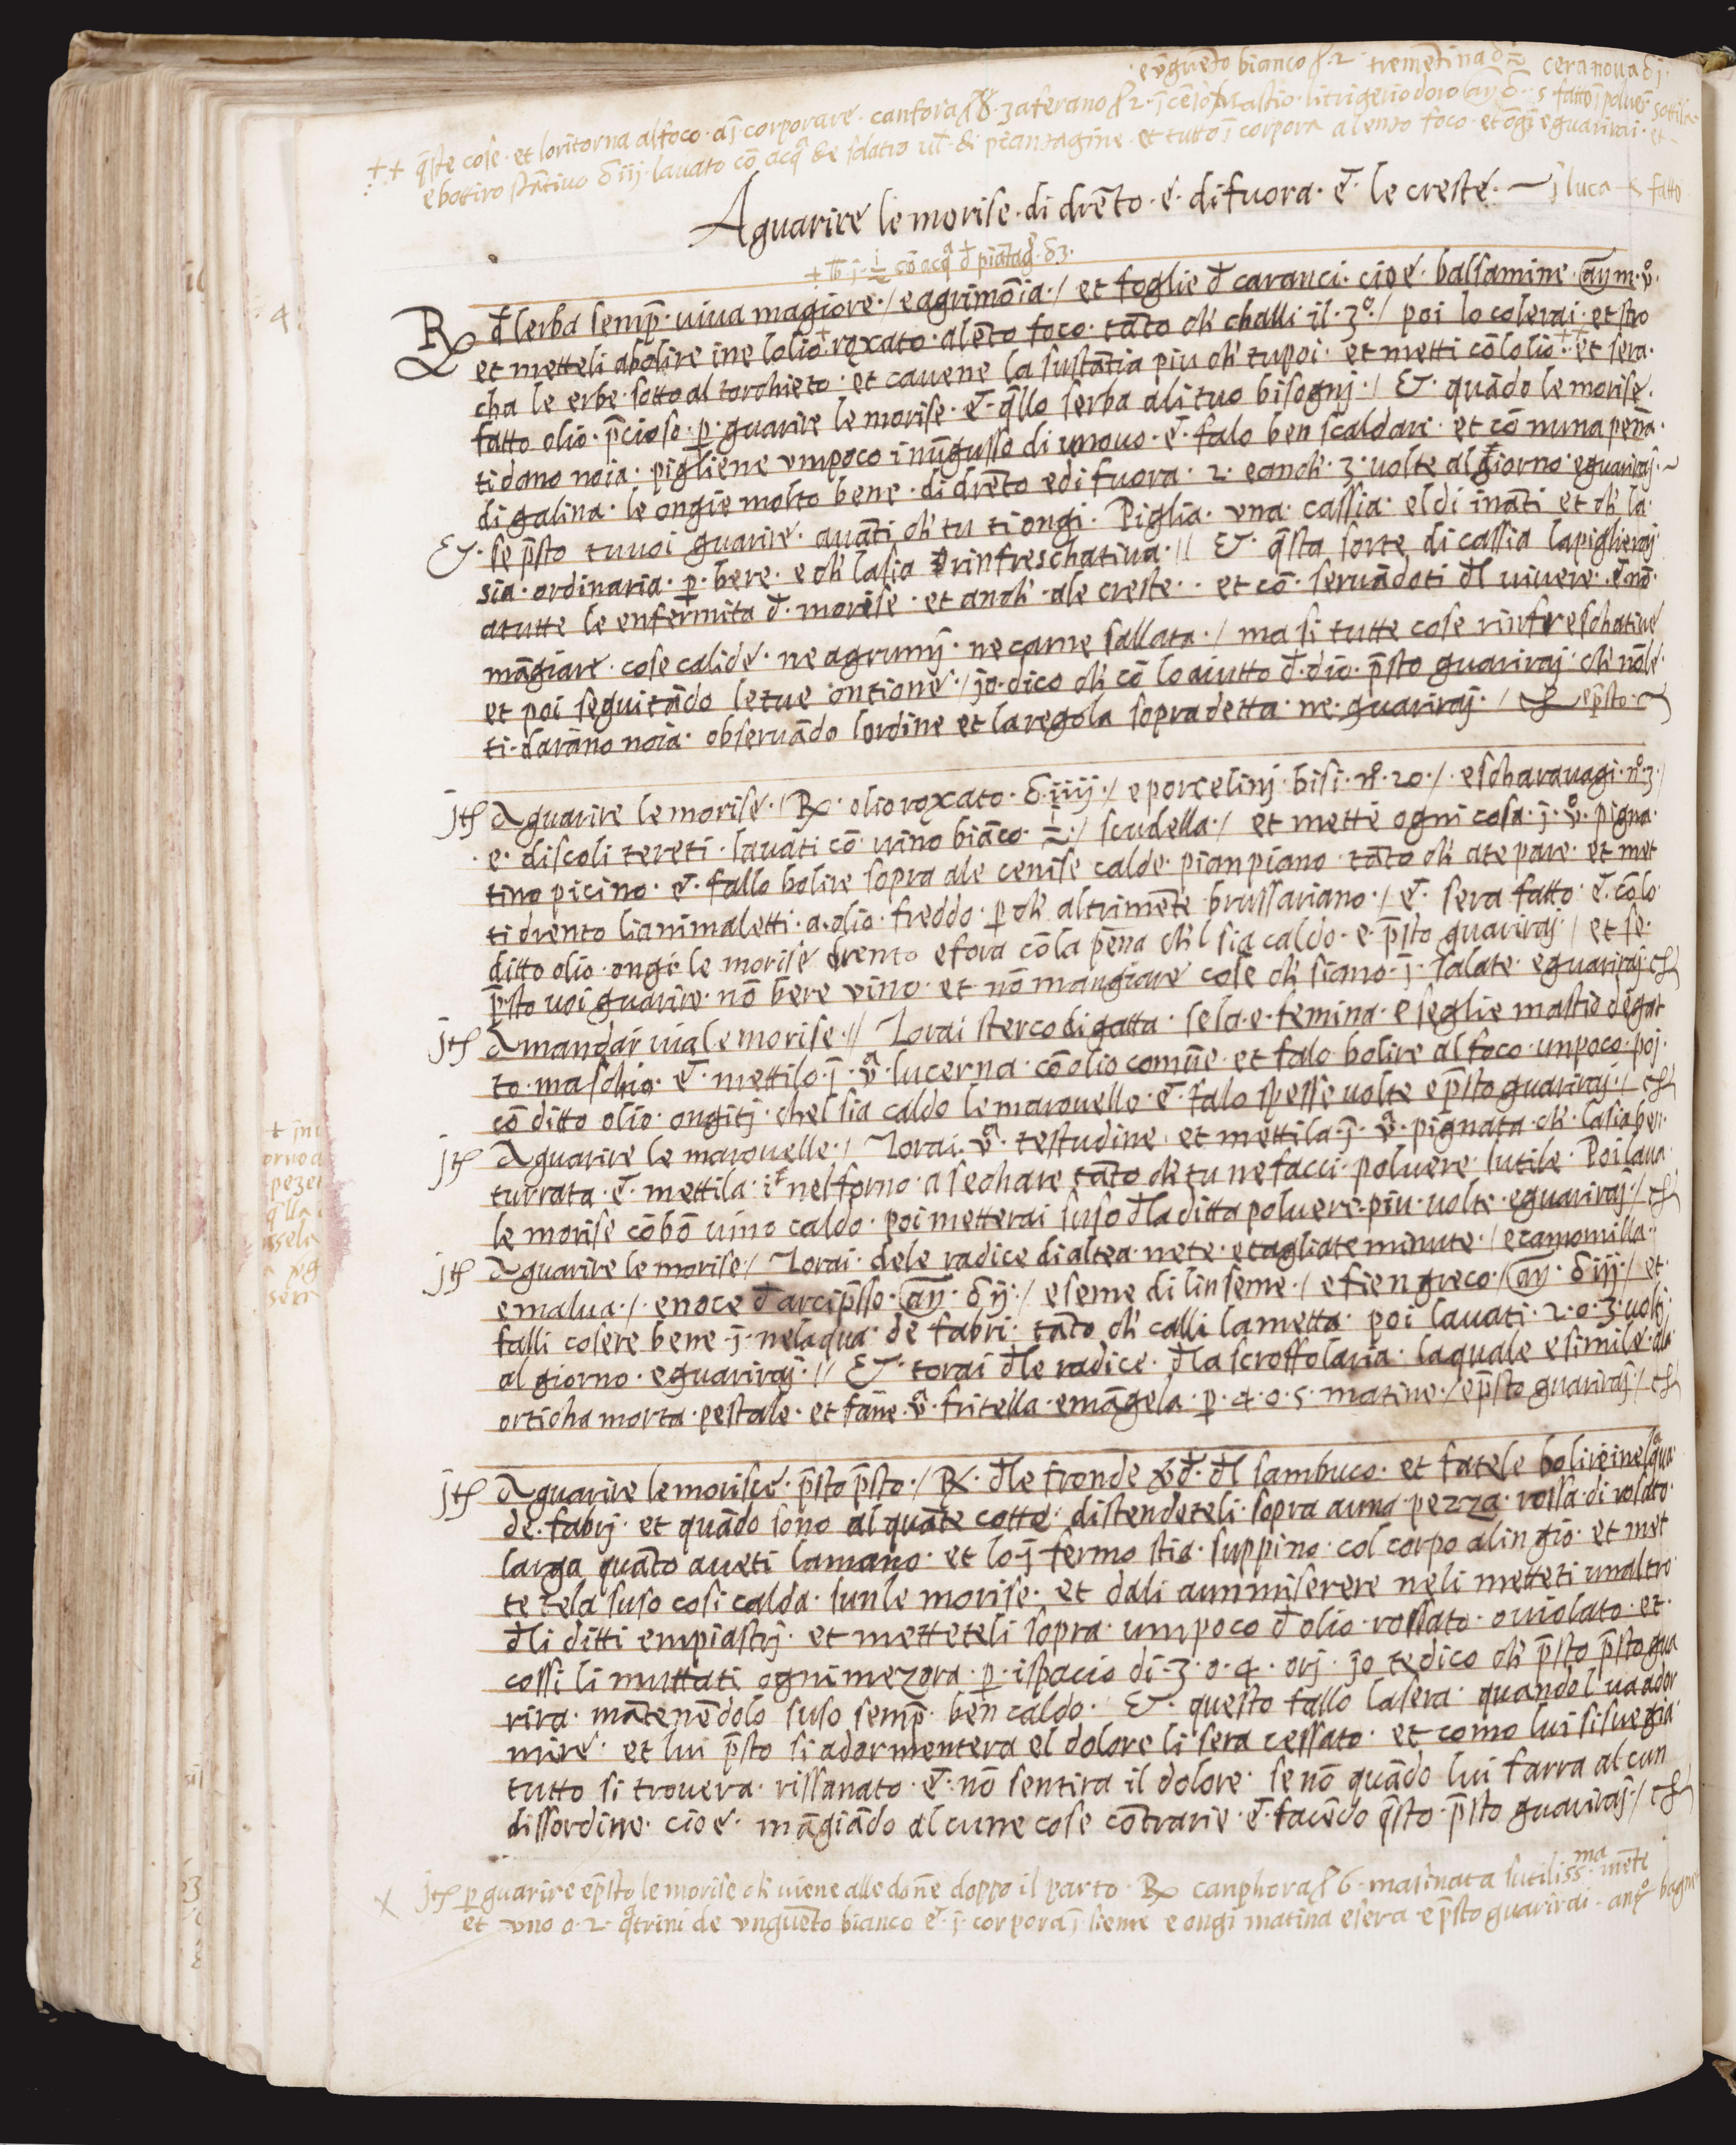 · e ūguēto bianco ʒ. 2 tremētina cera noua
++ q̄ste cose · et loritorna alfoco · aī corporare · canfora zaferano litrigerio doro fatto ī poluer̄ sottila
e bottiro lauato cō acq̄ de piantagine · et tutto ī corpora a lento foco · et ōgi e guarirai · et
Aguarire le morise · di drēto · e · difuora · e · le creste · ~ fatto
cō acq̄ đ piātaḡ
℞ đ lerba semp̄ · uiua magiore · / e agrimōia · / et foglie đ caranci · cioe · balsamine · ay m · v̊ ·
et metteli abolire ine lolio + roxato · alēto foco · tāto ch' challi il · 3º · / poi lo colerai · et stro
cha le erbe · sotto al torchieto · et cauene la sustātia piu ch' tupoi · et metti cō lolio · et sera ·
fatto olio · p̄cioso · p · guarire le morise · e · q̄llo serba ali tuo bisognj · / & · quādo le morise ·
ti dano noia · pigliene vmpoco i nūgusso di vnouo · e · falo ben scaldare · et cō nuna pēna ·
di galina · le ongie molto bene · di drēto e di fuora · 2 · e anch' · 3 · uolte al giorno · e guariraj · ~
& · se p̄sto tu uoi guarire · auāti ch' tu ti ongi · Piglia · vna · cassia · el di ināti et ch' la ·
sia · ordinaria · p · bere · e ch' la sia rinfreschatiua · // & · q̄sta sorte di cassia la piglieraj
atutte le enfermita đ · morise · et anch' · ale creste · · et cō · seruādoti đl uiuere · đ nō ·
māgiare · cose calide · ne agrumj · ne carne sallata · / ma si tutte cose rinfreschatiue
et poi seguitādo le tue ontione · / jo · dico ch' cō lo aiutto đ · dio · p̄sto guariraj · ch' nō le ·
ti · darāno noia · obseruādo lordine et la regola sopra detta · ne · guariraj · / & e p̄sto ·
jtꝭ Aguarire le morise · / ℞ · olio roxato · iiij · / e porcelinj · bisi · nº · 20 · / e scharauagi · nº · 3 /
· e · discoli tereti · lauāti cō uino biāco · / scudella · / et mette ogni cosa · j · v̊ · pigna ·
tino picino · e · fallo bolire sopra ale cenise calde · pian piano · tāto ch' ate pare · et met
ti drento lianimaletti · a · olio · freddo · p ch' altrimēte brussariano · / e · sera fatto · e · cō lo
ditto olio · ongi · le morise drento e fora cō la pēna ch' l sia caldo · e · p̄sto guariraj / et se ·
p̄sto uoi guarire · nō bere vino · et nō mangiare cose ch' siano · j · salate · e guariraj · &
jtꝭ Amandar uia le morise · // Torai sterco di gatta · se la · e · femina · e seglie mastio de gat
to · maschio · e · mettilo · j · vᵃ · lucerna · cō olio comūe · et falo bolire al foco · unpoco · poj ·
cō ditto olio · ongitj · chel sia caldo le marouelle · e · falo spesse uolte e p̄sto guariraj · / &
jtꝭ Aguarire le marouelle · / Torai · vᵃ · testudine · et mettila · j · vᵃ · pignata · ch' · la sia ben ·
turrata · e · mettila · nel forno · a sechare tāto ch' tu ne facci · poluere · sutile · Poi laua
le morise cō bō uino caldo · poi metterai suso đla ditta poluere · piu · uolte · e guariraj · / &
jtꝭ Aguarire le morise / Torai · dele radice di altea · nete · e tagliate minute · / e camomilla ·
e malua · / · e noce đ arcip̄sso · ay · ij · / e seme di linseme · / e fien greco · / ay · iij · / et ·
falli cosere bene · j · nelaqua · de fabri · tāto ch' calli la metta · poi lauati · 2 · o · 3 · uoltj
al giorno · e guariraj · // & · torai đle radice · đla scroffolaria · laquale e simile · ala
orticha morta · pestale · et fāne · vᵃ · fritella · e māgela · p · 4 · o · 5 · matine · / e p̄sto guariraj · / &
jtꝭ Aguarire le morisce · p̄sto p̄sto · / ℞ · đle fronde vđ · đl sambuco · et fatele bolire ine lᵃqua ·
de · fabrj · et quādo sono al quāte cotte · distendeteli · sopra auna · pezza · rossa · di rosato ·
larga quāto aueti lamano · et lo · j fermo stia · suppino · col corpo alin gio · et met
te tela suso cosi calda · sunle morise · et dali a unmiserere neli metteti unaltro
đli ditti empiastrj · et metteteli sopra · umpoco đ olio · rossato · o uiolato · et ·
cossi li muttati ogni mezora · p · ispacio di · 3 · o · 4 · orj · jo te dico ch' p̄sto p̄sto gua
rira · mātenēdolo suso semp̄ · ben caldo · & · questo fallo lasera · quando l' ua ador
mire · et lui p̄sto si adormentera el dolore li sera cessato · et como lui si suegia ·
tutto si trouera · rissanato · e · nō sentira il dolore · se nō quādo lui farra alcun
dissordine · cioe · māgiādo alcune cose cōtrarie · e · facēdo q̄sto · p̄sto guariraj · / &
× jtꝭ p guarire e p̄sto le morise ch' uiene alle dōne doppo il parto · ℞ canphora 6 · masinata sutilissᵐᵃ · mēte
et vno o · 2 · q̄trini de vnguēto bianco e · j · corpora j sieme e ongi matina e sera · e p̄sto guarirai · bagne